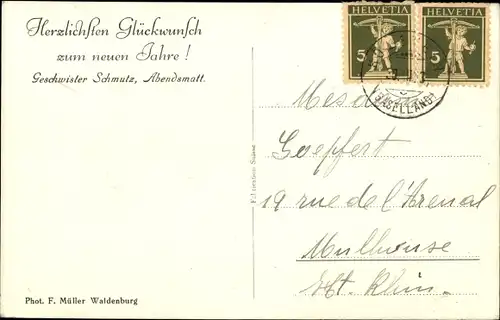 Herzlichsten Glückwunsch
zum neuen Jahre!
Geschwister Schmutz, Abendsmatt.
HELVETIA
5
HELVETIA
5
(BASELLAND)
Mesd
Goepfert
19 rue de l'Arsenal
Mulhouse
Ht. Rhin.
Phot. F. Müller Waldenburg